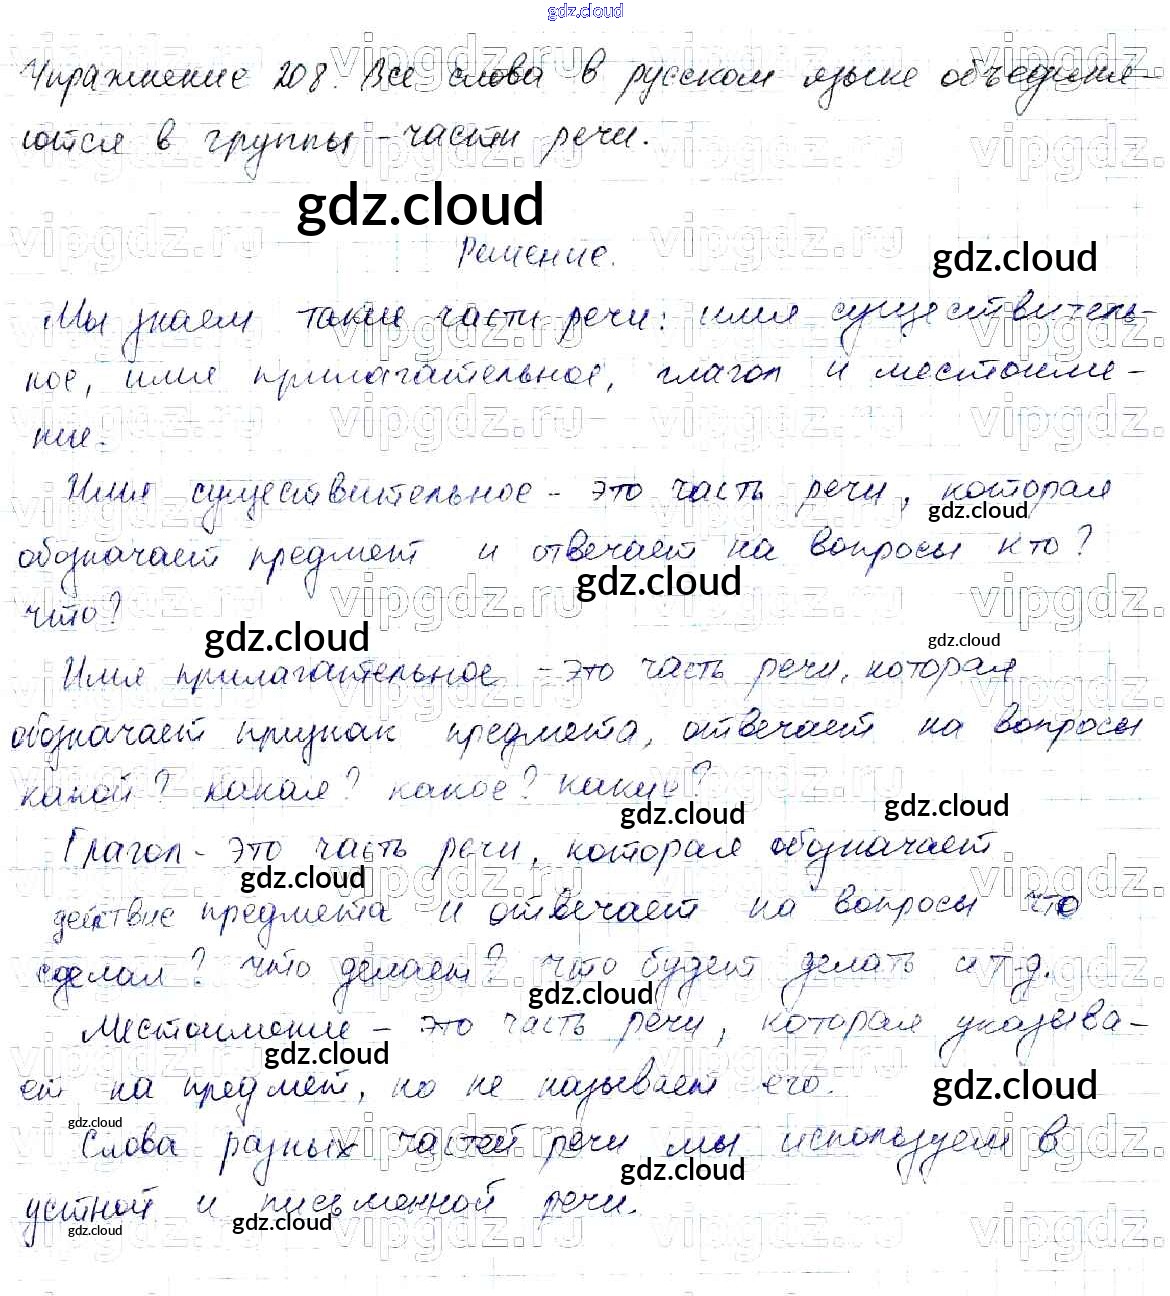 gdz.cloud
Упражнение 208. Все слова в русском языке объединя-
ются в группы - части речи.
gdz.cloud
Решение.
gdz.cloud
Мы знаем такие части речи: имя существитель-
ное, имя прилагательное, глагол и местоиме-
ние.
Имя существительное - это часть речи, которая
gdz.cloud
обозначает предмет и отвечает на вопросы кто?
gdz.cloud
что?
gdz.cloud
gdz.cloud
Имя прилагательное - это часть речи, которая
обозначает признак предмета, отвечает на вопросы
какой? какая? какое? какие?
gdz.cloud
gdz.cloud
Глагол - это часть речи, которая обозначает
gdz.cloud
действие предмета и отвечает на вопросы что
сделал? что делает? что будет делать и т.д.
gdz.cloud
Местоимение - это часть речи, которая указыва-
gdz.cloud
ет на предмет, но не называет его.
gdz.cloud
gdz.cloud
Слова разных частей речи мы используем в
gdz.cloud
устной и письменной речи.
gdz.cloud
gdz.cloud
vipgdz.ru